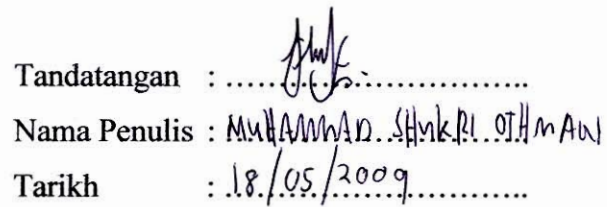 Tandatangan :
Nama Penulis : MUHAMMAD SHUKRI OTHMAN
Tarikh : 18/05/2009